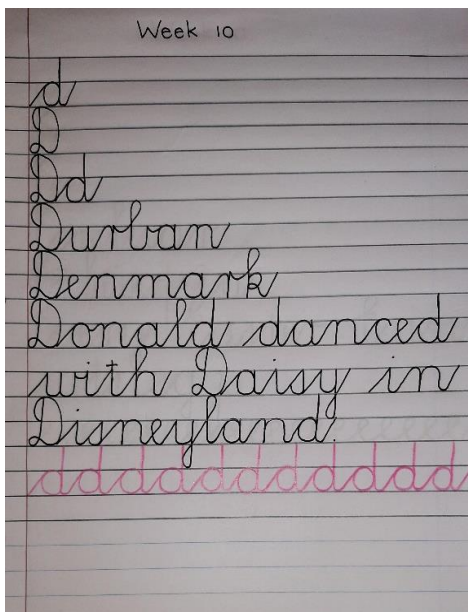 Week 10
d
D
Dd
Durban
Denmark
Donald danced
with Daisy in
Disneyland.
dddddddddddd